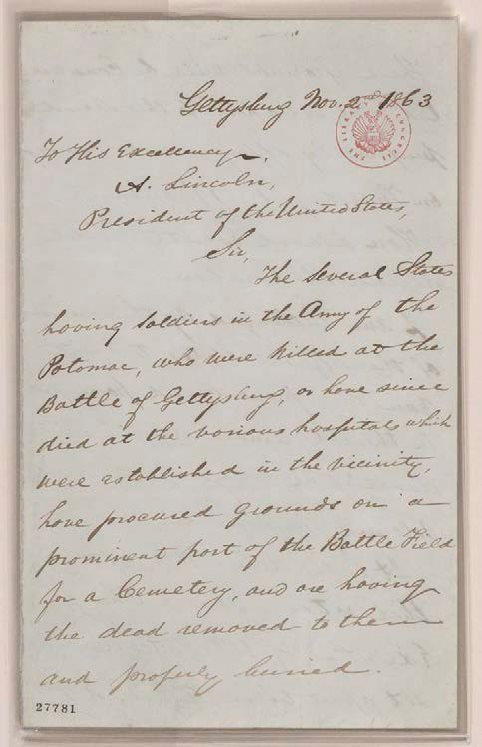 Gettysburg Nov. 2nd 1863
THE LIBRARY OF CONGRESS
To His Excellency,
A. Lincoln,
President of the United States,
Sir,
The Several States
having Soldiers in the Army of the
Potomac, who were killed at the
Battle of Gettysburg, or have since
died at the various hospitals which
were established in the vicinity,
have procured grounds on a
prominent part of the Battle Field
for a Cemetery, and are having
the dead removed to them
and properly buried.
27781